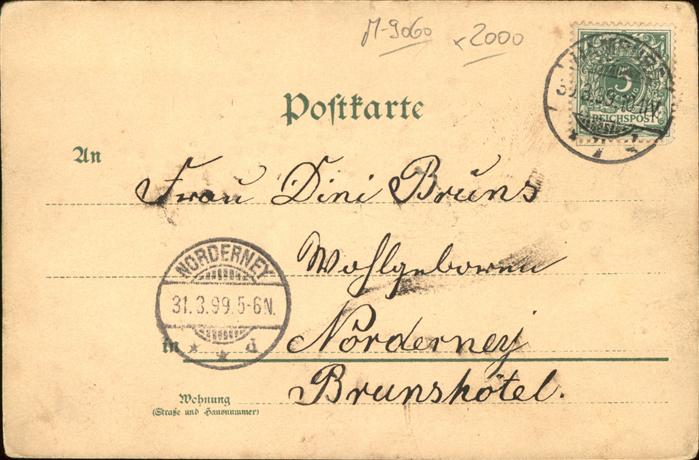 M-9060 x2000
5
REICHSPOST
Postkarte
An
Frau Dini Bruns
Wohlgeboren
NORDERNEY
31.3.99.5-6N.
* * d
in Norderney
Brunshotel.
Wohnung
(Straße und Hausnummer)